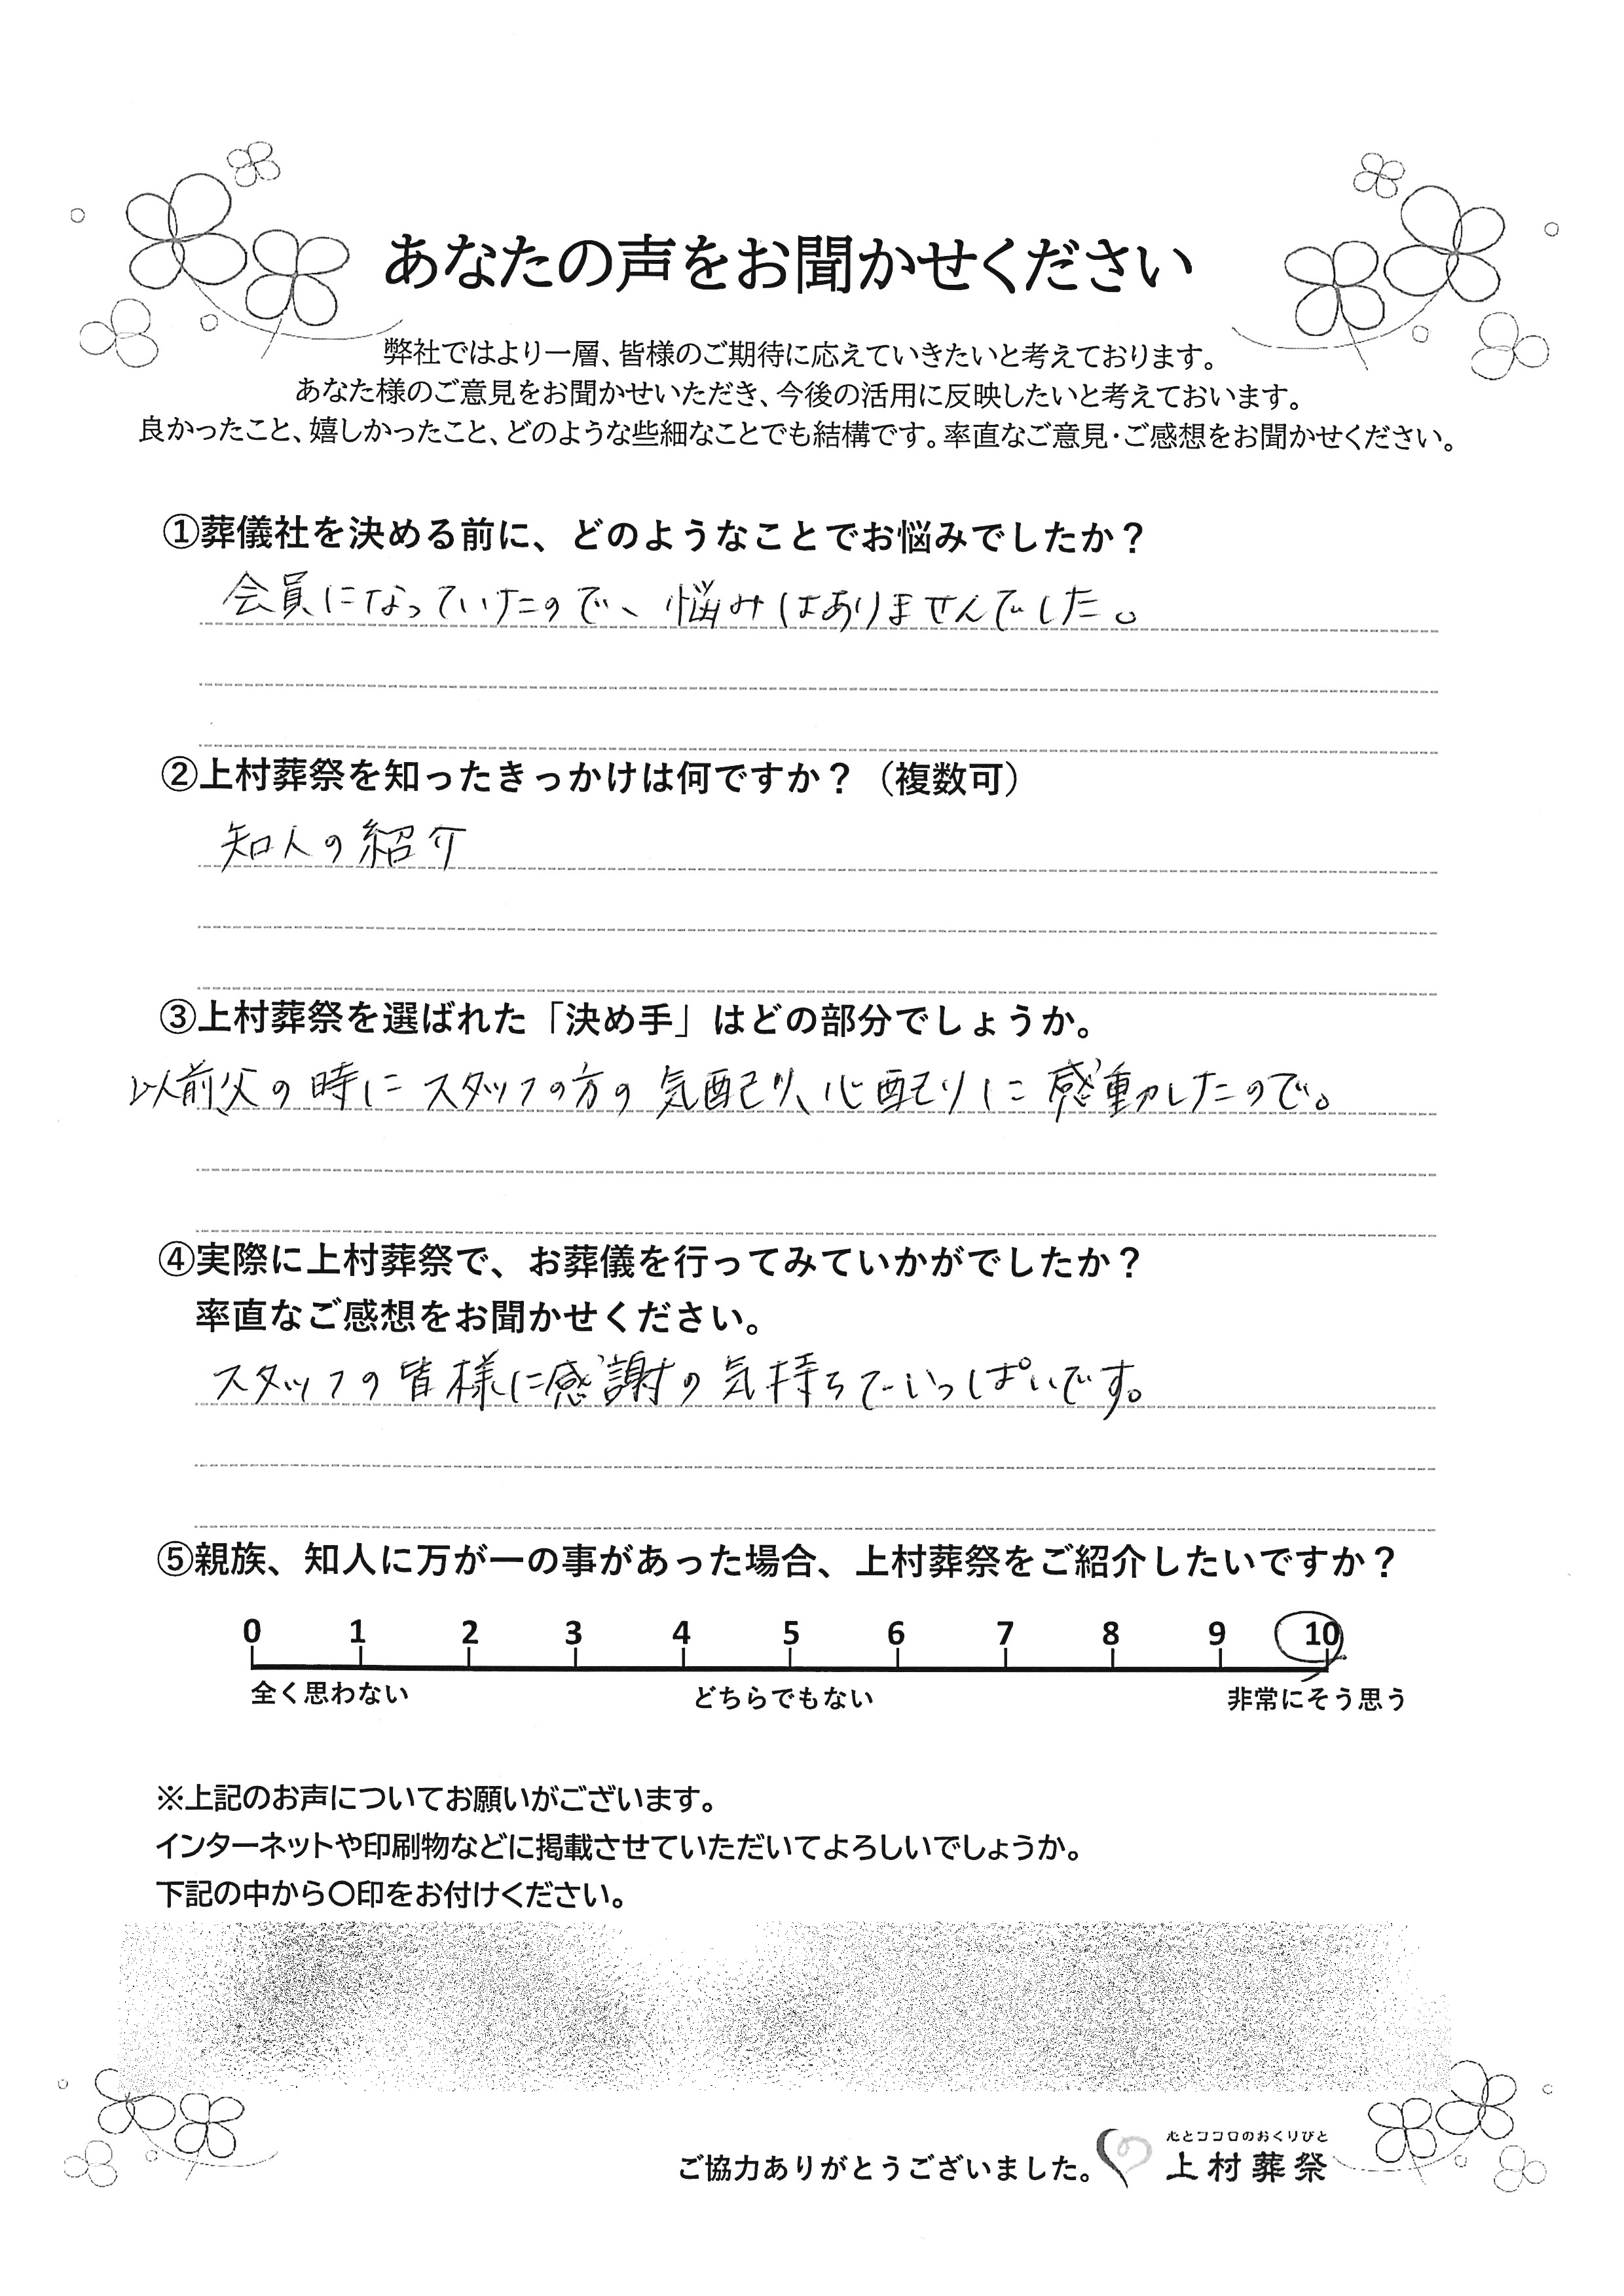 あなたの声をお聞かせください
弊社ではより一層、皆様のご期待に応えていきたいと考えております。
あなた様のご意見をお聞かせいただき、今後の活用に反映したいと考えておいます。
良かったこと、嬉しかったこと、どのような些細なことでも結構です。率直なご意見・ご感想をお聞かせください。
①葬儀社を決める前に、どのようなことでお悩みでしたか？
会員になっていたので、悩みはありませんでした。
②上村葬祭を知ったきっかけは何ですか？（複数可）
知人の紹介
③上村葬祭を選ばれた「決め手」はどの部分でしょうか。
以前父の時にスタッフの方の気配り、心配りに感動したので。
④実際に上村葬祭で、お葬儀を行ってみていかがでしたか？
率直なご感想をお聞かせください。
スタッフの皆様に感謝の気持ちでいっぱいです。
⑤親族、知人に万が一の事があった場合、上村葬祭をご紹介したいですか？
0 1 2 3 4 5 6 7 8 9 10
全く思わない どちらでもない 非常にそう思う
※上記のお声についてお願いがございます。
インターネットや印刷物などに掲載させていただいてよろしいでしょうか。
下記の中から〇印をお付けください。
心とココロのおくりびと
ご協力ありがとうございました。 上村葬祭